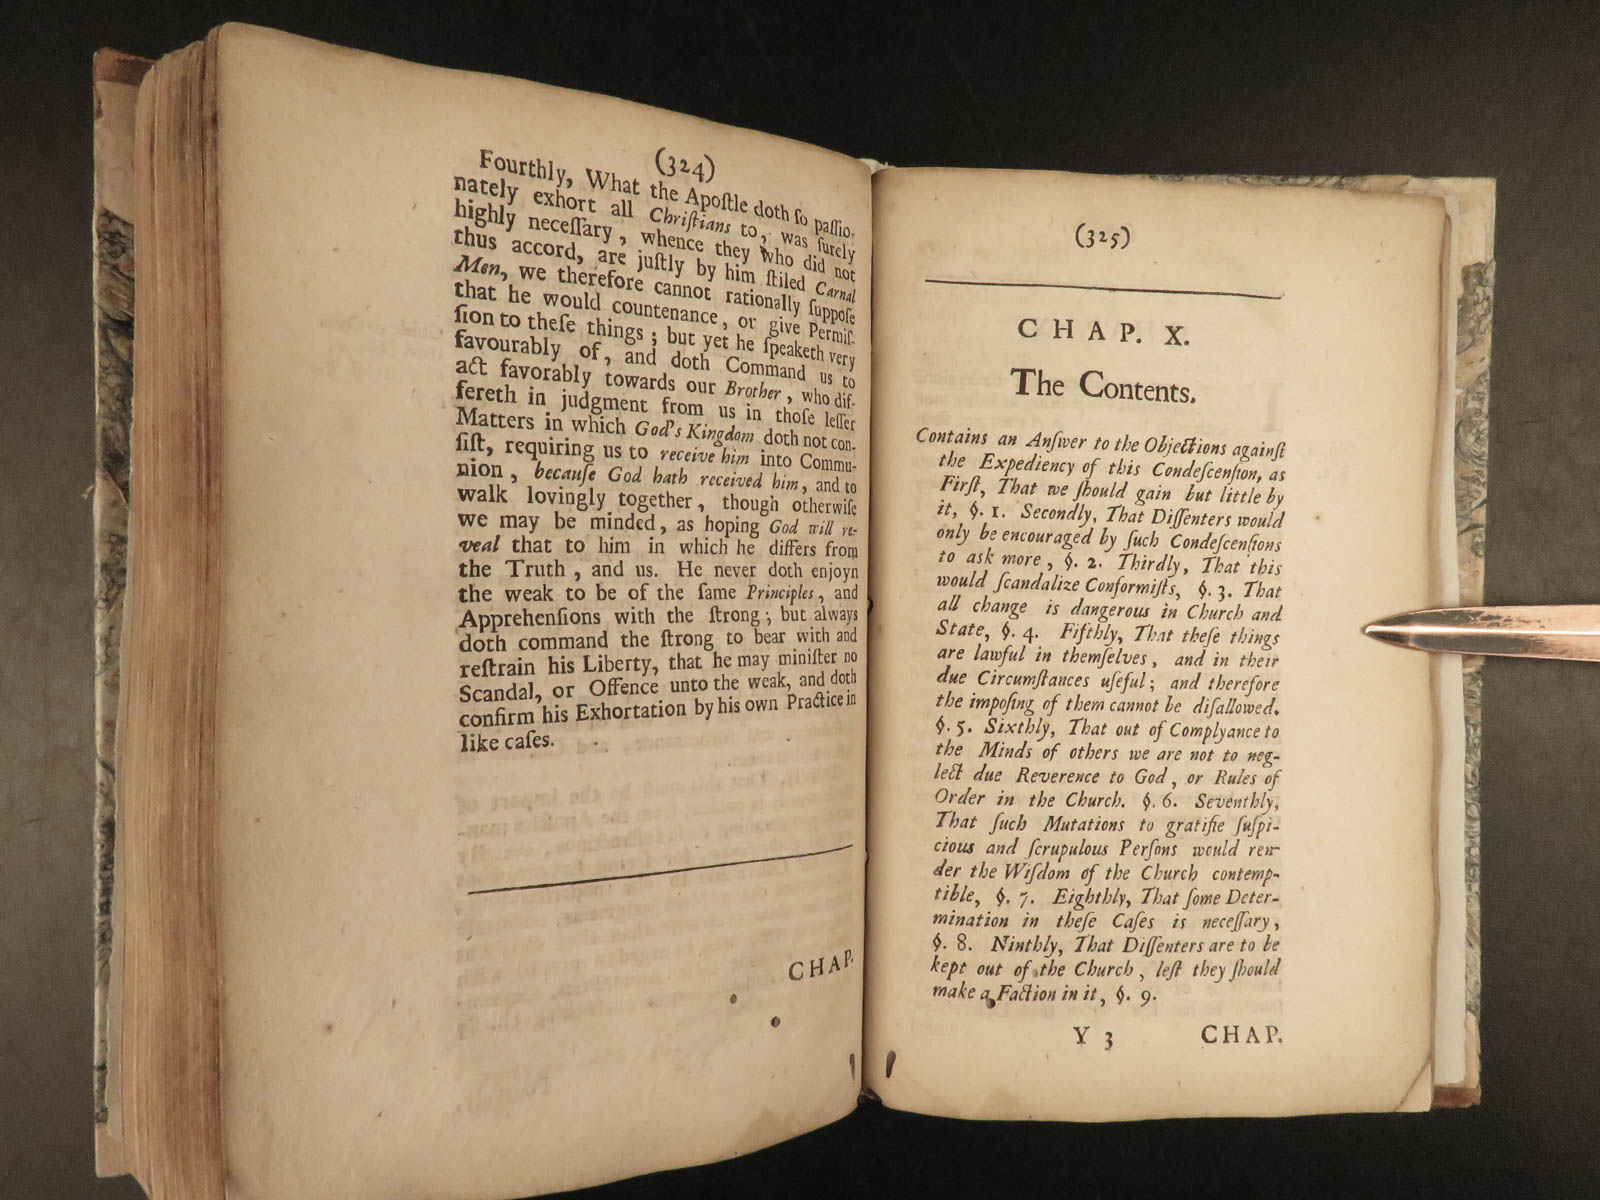 (324)
Fourthly, What the Apoſtle doth ſo paſſio-
nately exhort all Chriſtians to, was ſurely
highly neceſſary, whence they who did not
thus accord, are juſtly by him ſtiled Carnal
Men, we therefore cannot rationally ſuppoſe
that he would countenance, or give Permiſ-
ſion to theſe things; but yet he ſpeaketh very
favourably of, and doth Command us to
act favorably towards our Brother, who dif-
fereth in judgment from us in thoſe leſſer
Matters in which God's Kingdom doth not con-
ſiſt, requiring us to receive him into Commu-
nion, becauſe God hath received him, and to
walk lovingly together, though otherwiſe
we may be minded, as hoping God will re-
veal that to him in which he differs from
the Truth, and us. He never doth enjoyn
the weak to be of the ſame Principles, and
Apprehenſions with the ſtrong; but always
doth command the ſtrong to bear with and
reſtrain his Liberty, that he may miniſter no
Scandal, or Offence unto the weak, and doth
confirm his Exhortation by his own Practice in
like caſes.
CHAP.
(325)
CHAP. X.
The Contents.
Contains an Anſwer to the Objections againſt
the Expediency of this Condeſcenſion, as
Firſt, That we ſhould gain but little by
it, §. 1. Secondly, That Diſſenters would
only be encouraged by ſuch Condeſcenſions
to ask more, §. 2. Thirdly, That this
would ſcandalize Conformiſts, §. 3. That
all change is dangerous in Church and
State, §. 4. Fifthly, That theſe things
are lawful in themſelves, and in their
due Circumſtances uſeful; and therefore
the impoſing of them cannot be diſallowed.
§. 5. Sixthly, That out of Complyance to
the Minds of others we are not to neg-
lect due Reverence to God, or Rules of
Order in the Church. §. 6. Seventhly,
That ſuch Mutations to gratifie ſuſpi-
cious and ſcrupulous Perſons would ren-
der the Wiſdom of the Church contemp-
tible, §. 7. Eighthly, That ſome Deter-
mination in theſe Caſes is neceſſary,
§. 8. Ninthly, That Diſſenters are to be
kept out of the Church, leſt they ſhould
make a Faction in it, §. 9.
Y 3 CHAP.